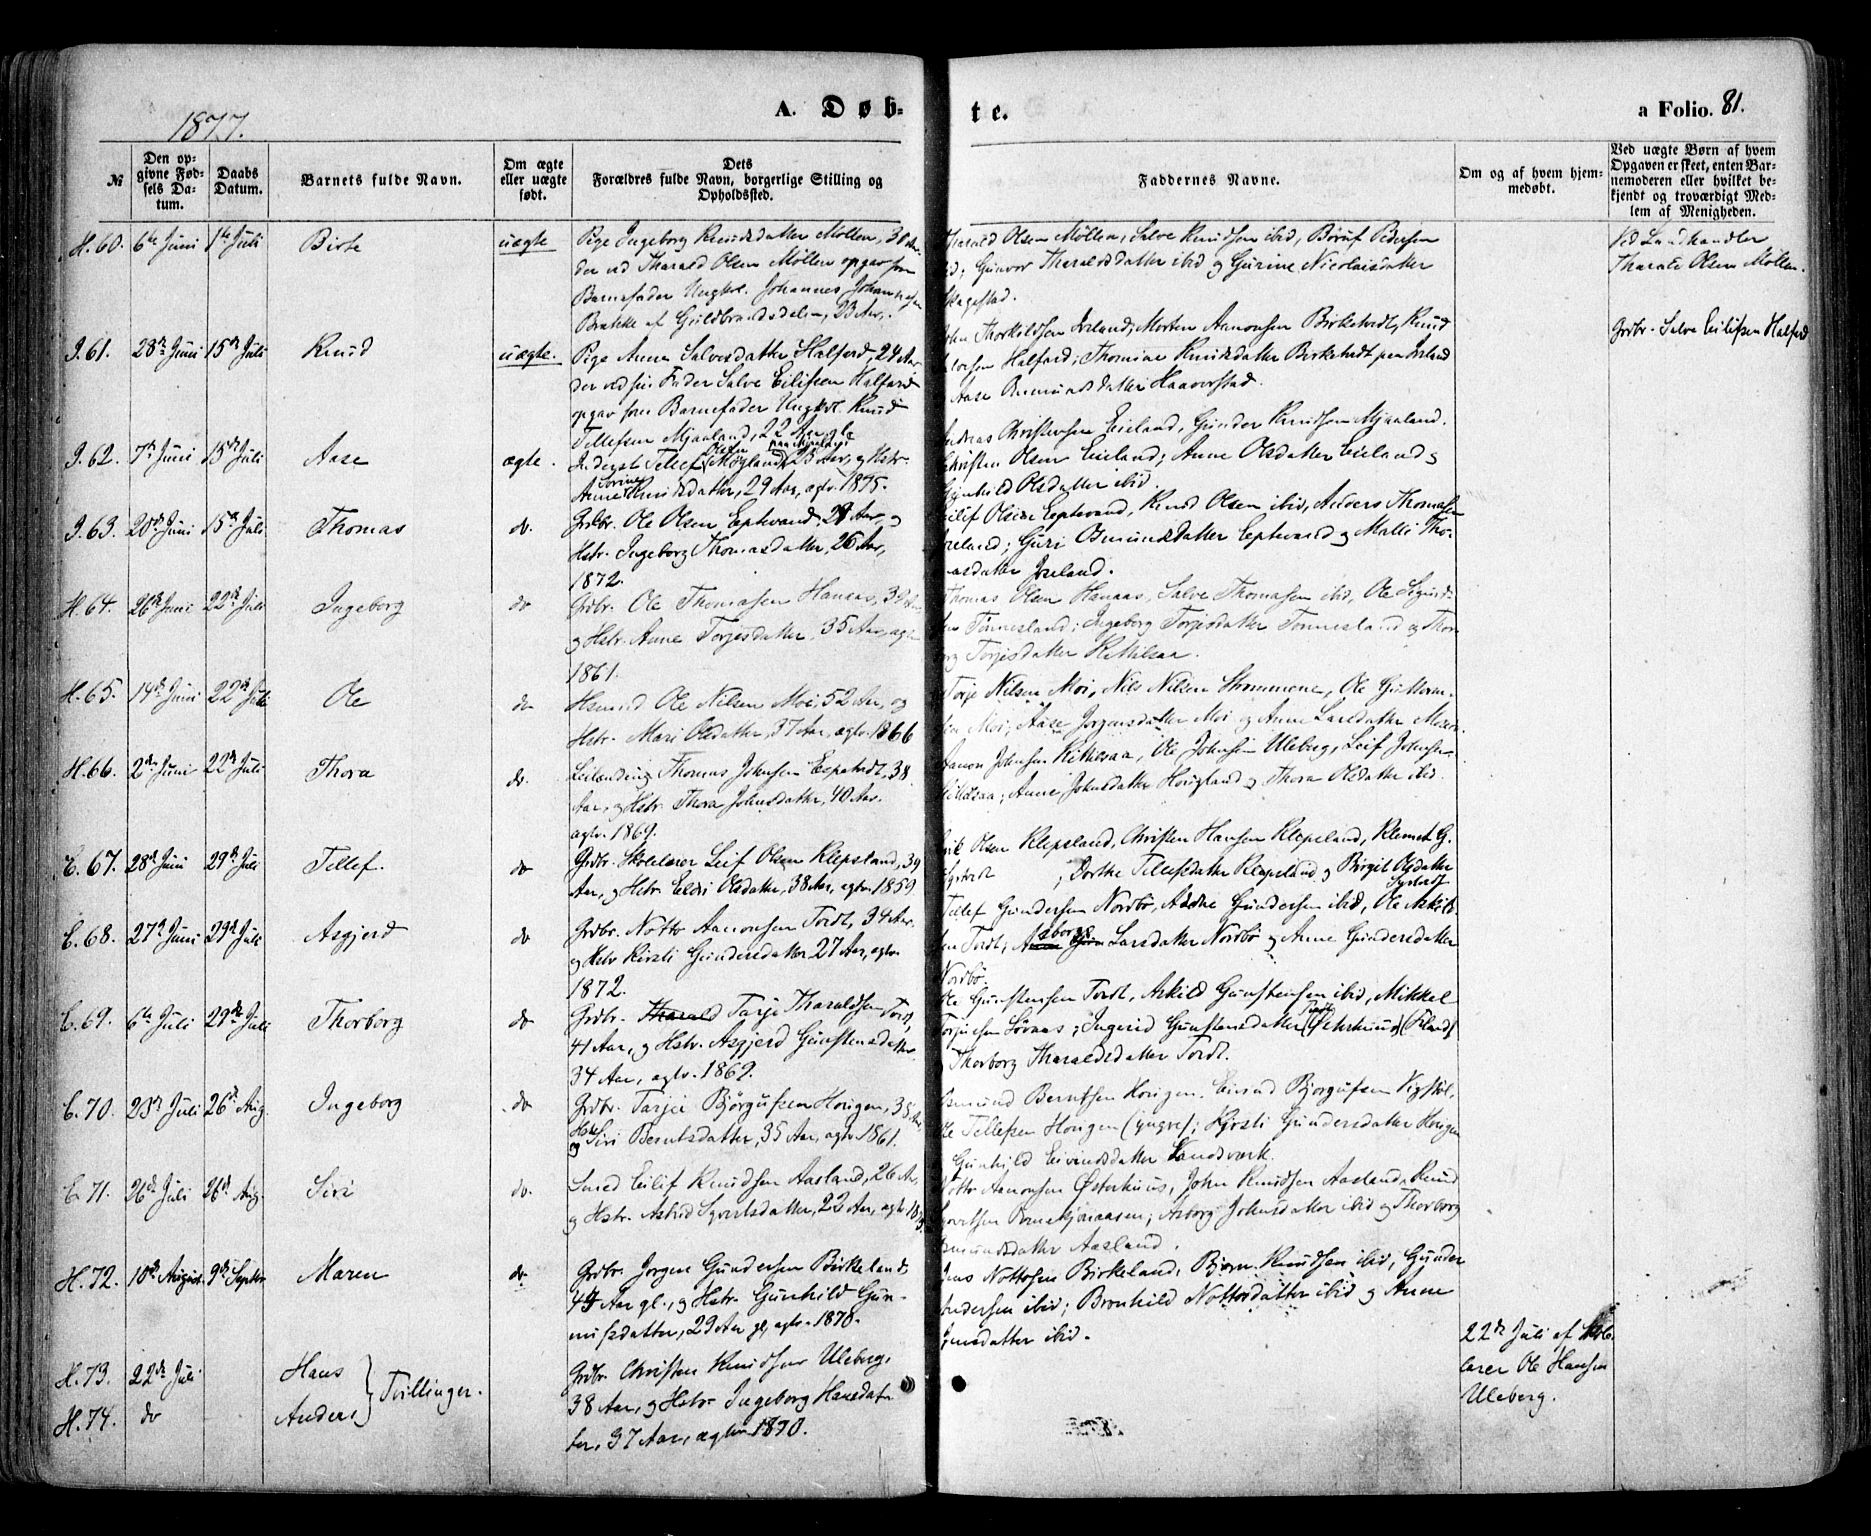 1877.
A. Døb-
te.
a Folio. 81.
№
Den op-
givne Fød-
sels Da-
tum.
Daabs
Datum.
Barnets fulde Navn.
Om ægte
eller uægte
født.
Dets
Forældres fulde Navn, borgerlige Stilling og
Opholdssted.
Faddernes Navne.
Om og af hvem hjem-
medøbt.
Ved uægte Børn af hvem
Opgaven er skeet, enten Bar-
nemoderen eller hvilket be-
kjendt og troværdigt Med-
lem af Menigheden.
H. 60. 6te Juni 1te Juli Birte uægte
Pige Ingeborg Knudsdatter Møllen, 30 Aar
der ved Tharald Olsen Møllen opgav som
Barnefader Ungkl. Johannes Johannesen
Brække af Guldbrandsdalen, 23 Aar.
Tharald Olsen Møllen, Salve Knudsen ibid, Børuf Pedersen
Gunvor Tharaldsdatter ibid og Gurine Nicolaisdatter
Ved Landhandler
Tharald Olsen Møllen.
I. 61. 28de Juni 15de Juli Knud uægte.
Pige Anne Salvesdatter Halfard, 24 Aar
der ved sin Fader Salve Eilifsen Halfard
opgav som Barnefader Ungkl. Knud
Tellefsen Mjaaland, 22 Aar gl.
John Thorkildsen Ireland, Morten Aanonsen Birketvedt, Knud
Halfard; Thomine Knudsdatter Birketvedt
Aase Omundsdatter Haaverstad.
Grdbr. Salve Eilifsen Halfard
I. 62. 7de Juni 15de Juli Aase ægte.
Inderst Tellef Olsen Møgland, 23 Aar, og Hstr.
Anne Torine Knudsdatter, 29 Aar, agtv. 1875.
Andreas Christensen Eieland, Gunder Knudsen Mjaaland.
Christen Olsen Eieland; Anne Olsdatter Eieland og
Gunhild Olsdatter ibid.
I. 63. 20de Juni 15de Juli Thomas do.
Grdbr. Ole Olsen Eptevand, 29 Aar, og
Hstr. Ingeborg Thomasdatter, 26 Aar,
1872.
Eilif Olsen Eptevand, Knud Olsen ibid, Anders Thomasen
Ireland; Guri Omundsdatter Eptevand og Malli Tho-
masdatter Ireland.
H. 64. 26de Juni 22de Juli Ingeborg do
Grdbr. Ole Thomasen Hanaas, 39 Aar,
og Hstr. Anne Torjesdatter, 35 Aar, agtv.
1861.
Thomas Olsen Hanaas, Salve Thomasen ibid, Ole Sigurd-
sen Tønnesland; Ingeborg Torjesdatter Tønnesland og Thor-
borg Torjesdatter Kittilsaa.
H. 65. 14de Juni 22de Juli Ole do
Husmand Ole Nilsen Moi, 52 Aar, og
Hstr. Mari Olsdatter, 37 Aar, agtv. 1866
Torje Nilsen Moi, Nils Nilsen Strømmene, Ole Guttorm-
sen Moi; Aase Jørgensdatter Moi og Anne Larsdatter
H. 66. 2den Juni 22de Juli Thora do.
Leilænding Thomas Johnsen Espetvedt, 38
Aar, og Hstr. Thora Johnsdatter, 40 Aar.
agtv. 1869.
Aanon Johnsen Kittilsaa, Ole Johnsen Uleberg, Leif Johnsen
Kittilsaa; Anne Johnsdatter Hougland og Thora Olsdatter ibid.
E. 67. 28de Juni 29de Juli Tellef. do
Grdbr. Skolelærer Leif Olsen Klepsland, 39
Aar, og Hstr. Eldri Olsdatter, 38 Aar, agtv. 1859
Olsen Klepsland, Christen Hansen Klepsland, Klemet G.
; Dorthe Tellefsdatter Klepsland og Birgit Olsdatter
E. 68. 27de Juni 29de Juli Asgjerd do
Grdbr. Notto Aanonsen Tordt, 34 Aar,
og Hstr. Kirsti Gundersdatter 27 Aar, agtv.
1872.
Tellef Gundersen Nordbø, Gundersen ibid, Ole Askild-
sen Tordt; Larsdatter Nordbø og Anne Gundersdatter
Nordbø.
E. 69. 6te Juli 29de Juli Thorborg do
Grdbr. Tharald Tarje Tharaldsen Tordt,
41 Aar, og Hstr. Asgjerd Gunstensdatter
34 Aar, agtv. 1869.
Ole Gunstensen Tordt, Askild Gunstensen ibid, Mikkel
Løvaas; Ingerid Gunstensdatter
Thorborg Tharaldsdatter Tordt.
E. 70. 23de Juli 26de Aug. Ingeborg do
Grdbr. Tarjei Bjørgufsen Horigen, 35 Aar,
og Hstr. Siri Berntsdatter, 35 Aar, agtv. 1861.
Berntsen Horigen, Eivind Bjorgufsen
Ole Tellefsen Horigen (yngre); Kjersti Gundersdatter Horigen
Gunhild Eivindsdatter Landsværk.
E. 71. 26de Juli 26de Aug. Siri do.
Smed Eilif Knudsen Aasland, 26 Aar,
og Hstr. Astrid Sjvertsdatter, 22 Aar, agtv.
Notto Aanonsen Østerhuus, John Knudsen Aasland, Knud
Asborg Johnsdatter ibid og Thorborg
Omundsdatter Aasland.
H. 72. 10de August 9de Septbr Maren do.
Grdbr. Jørgen Gundersen Birkeland,
43 Aar gl., og Hstr. Gunhild Gun-
nufsdatter, 29 Aar gl, agtv. 1870.
Jens Nottosen Birkeland, Bjørn Knudsen ibid, Gunder
Andersen ibid; Brønhild Nottosdatter ibid og Anne
Jensdatter ibid.
H. 73. 22de Juli Hans
H. 74. do Anders } Tvillinger.
Grdbr. Christen Knudsen Uleberg,
38 Aar, og Hstr. Ingeborg Hansdat-
ter, 37 Aar, agtv. 1870.
22de Juli af Sko-
lærer Ole Hansen
Uleberg.